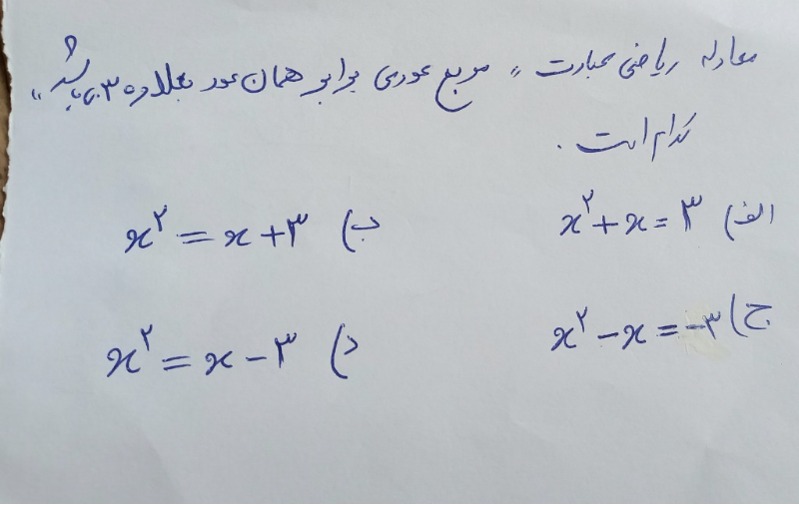 معادله ریاضی عبارت «مربع عددی برابر همان عدد بعلاوه ۳ می باشد»
کدام است.
الف) x²+x=۳ ب) x²=x+۳
ج) x²-x=-۳ د) x²=x-۳